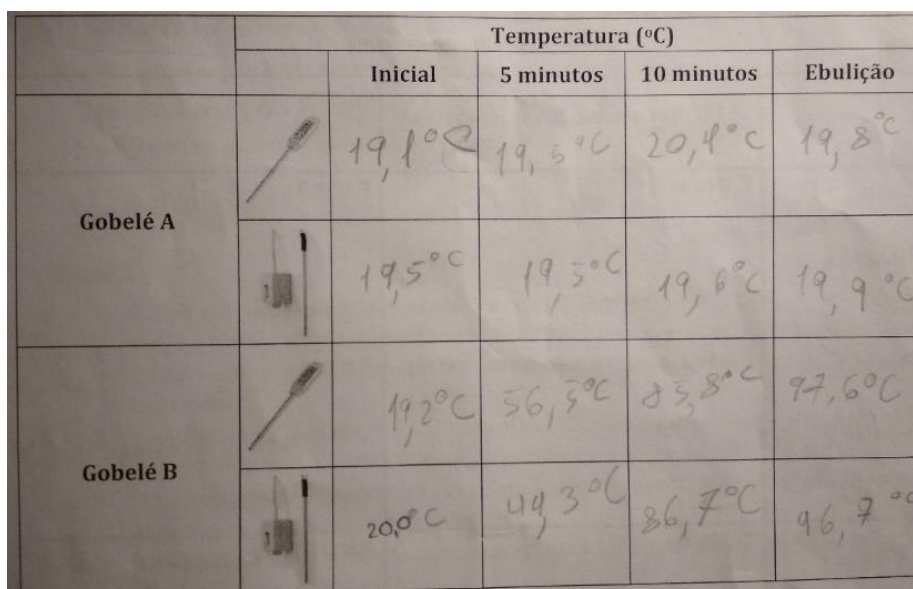 Temperatura (ºC)
Inicial 5 minutos 10 minutos Ebulição
Gobelé A
19,1°C 19,5°C 20,4°C 19,8°C
19,5°C 19,5°C 19,6°C 19,9°C
Gobelé B
19,2°C 56,5°C 85,8°C 97,6°C
20,0°C 44,3°C 86,7°C 96,7°C